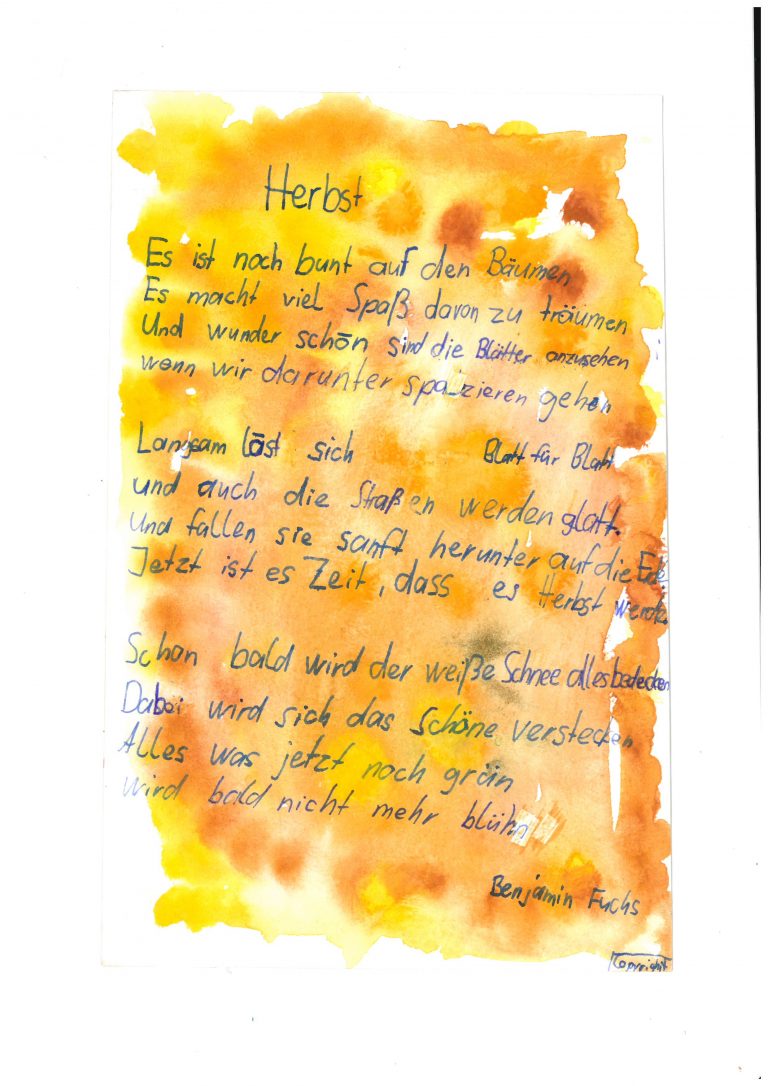 Herbst
Es ist noch bunt auf den Bäumen
Es macht viel Spaß davon zu träumen
Und wunder schön sind die Blätter anzusehen
wenn wir darunter spazieren gehen
Langsam löst sich Blatt für Blatt
und auch die Straßen werden glatt.
Und fallen sie sanft herunter auf die Erde
Jetzt ist es Zeit, dass es Herbst werde.
Schon bald wird der weiße Schnee alles bedecken
Dabei wird sich das Schöne verstecken
Alles was jetzt noch grün
wird bald nicht mehr blühn
Benjamin Fuchs
Copyright